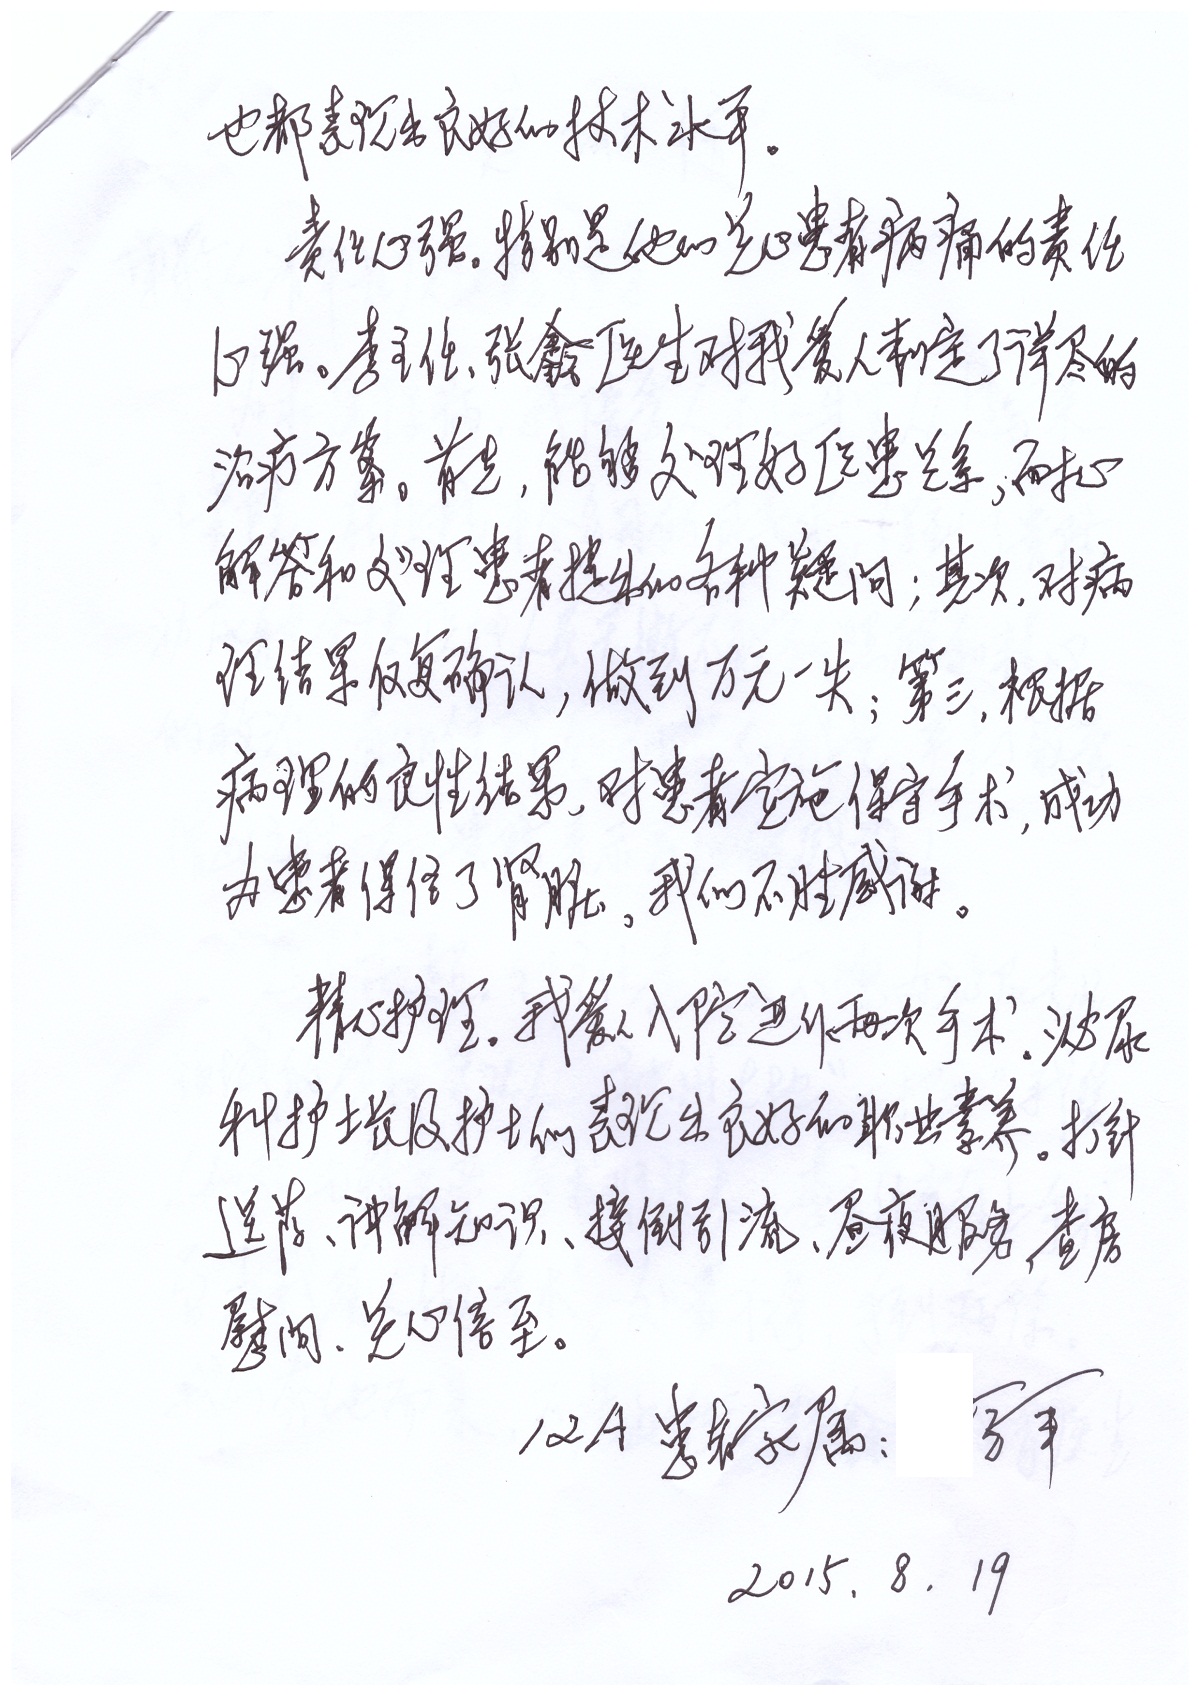 也都表现出良好的技术水平。
责任心强。特别是他们关心患者病痛的责任
心强。李主任、张鑫医生对我爱人制定了详尽的
治疗方案。首先,能够处理好医患关系,耐心
解答和处理患者提出的各种疑问;其次,对病
理结果反复确认,做到万无一失;第三,根据
病理的良性结果,对患者实施保守手术,成功
为患者保住了肾脏,我们不胜感谢。
精心护理。我爱人入院进行两次手术,泌尿
科护士长及护士们表现出良好的职业素养。打针
送药、讲解知识、接倒引流、昼夜服务、查房
慰问、关心倍至。
12A 患者家属:
2015.8.19